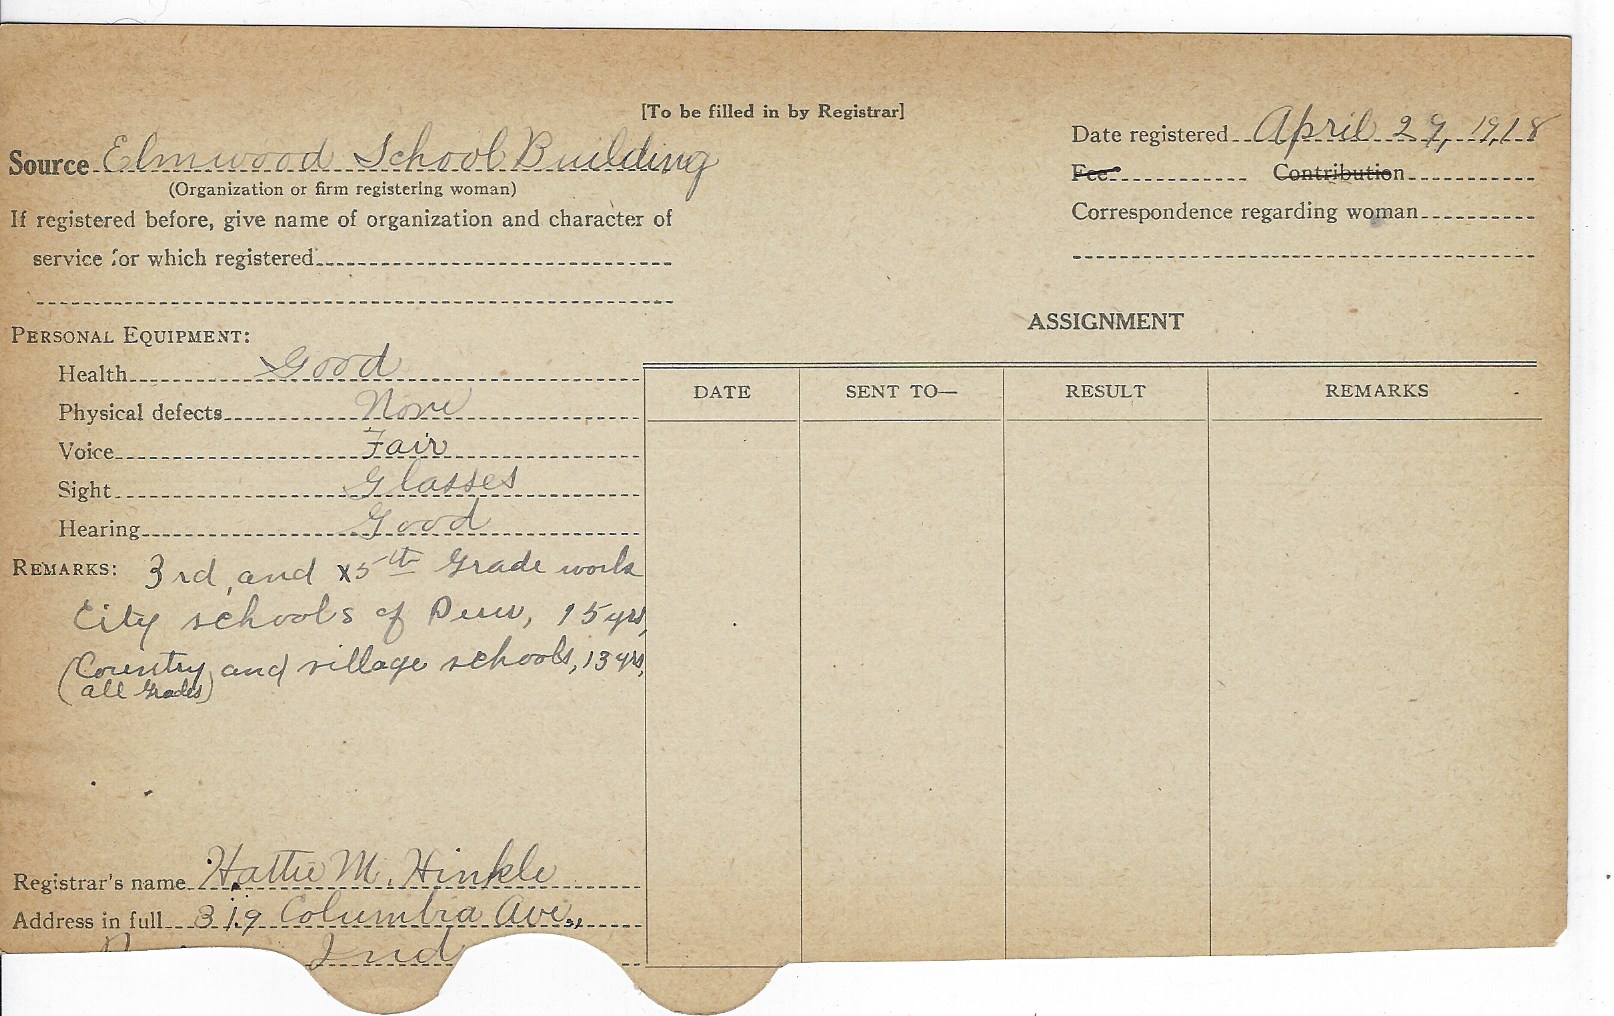 [To be filled in by Registrar]
Source Elmwood School Building
(Organization or firm registering woman)
If registered before, give name of organization and character of
service for which registered
Date registered April 27, 1918
Fee Contribution
Correspondence regarding woman
PERSONAL EQUIPMENT:
Health Good
Physical defects None
Voice Fair
Sight Glasses
Hearing Good
REMARKS: 3rd, and x5th Grade work
City schools of Peru, 15 yrs,
(Country and village schools, 13 yrs,
(all Grades)
ASSIGNMENT
DATE SENT TO— RESULT REMARKS
Registrar's name Hattie M. Hinkle
Address in full 319 Columbia Ave.,
Ind